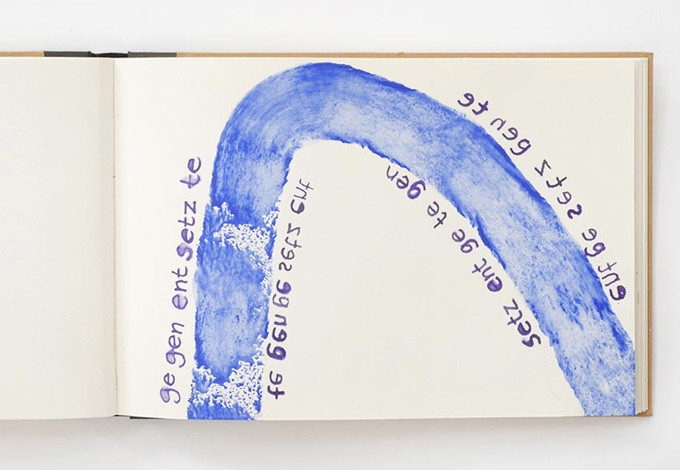 ge gen ent setz te
te gen ge setz ent
setz ent ge te gen
ent ge setz gen te